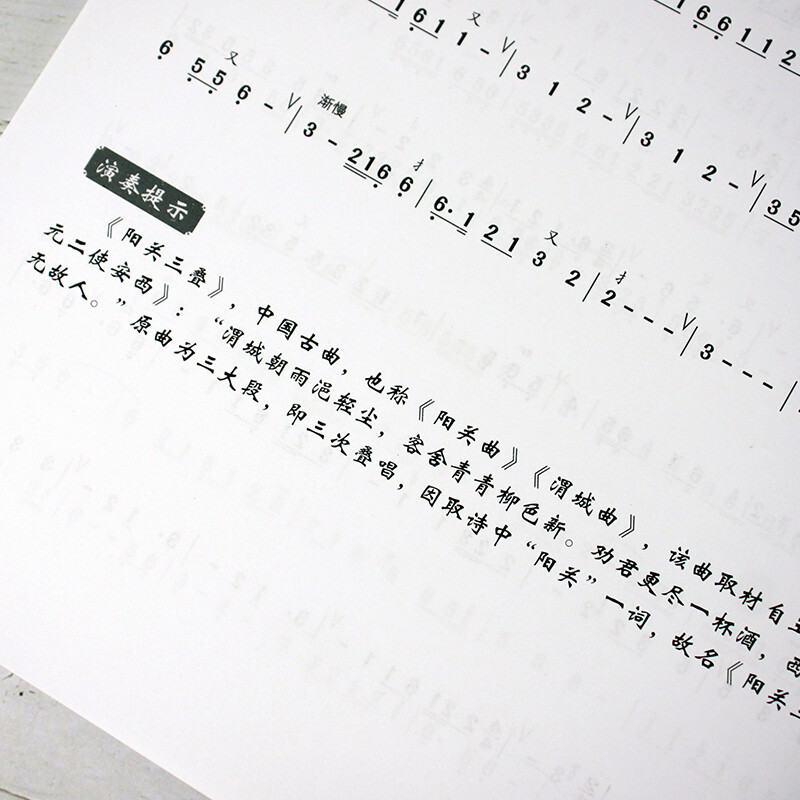 1 6 1 1 - V | 3 1 2 - V | 3 1 2 - V | 3 5
又
6 5 5 6 - V | 3 - 2 1 6 6 | 6. 1 2 1 3 2 | 2 - - - V | 3 - - - |
又 渐慢 扌 又 扌
演奏提示
《阳关三叠》,中国古曲,也称《阳关曲》《渭城曲》,该曲取材自
元二使安西》:“渭城朝雨浥轻尘,客舍青青柳色新。劝君更尽一杯酒,西
无故人。”原曲为三大段,即三次叠唱,因取诗中“阳关”一词,故名《阳关三